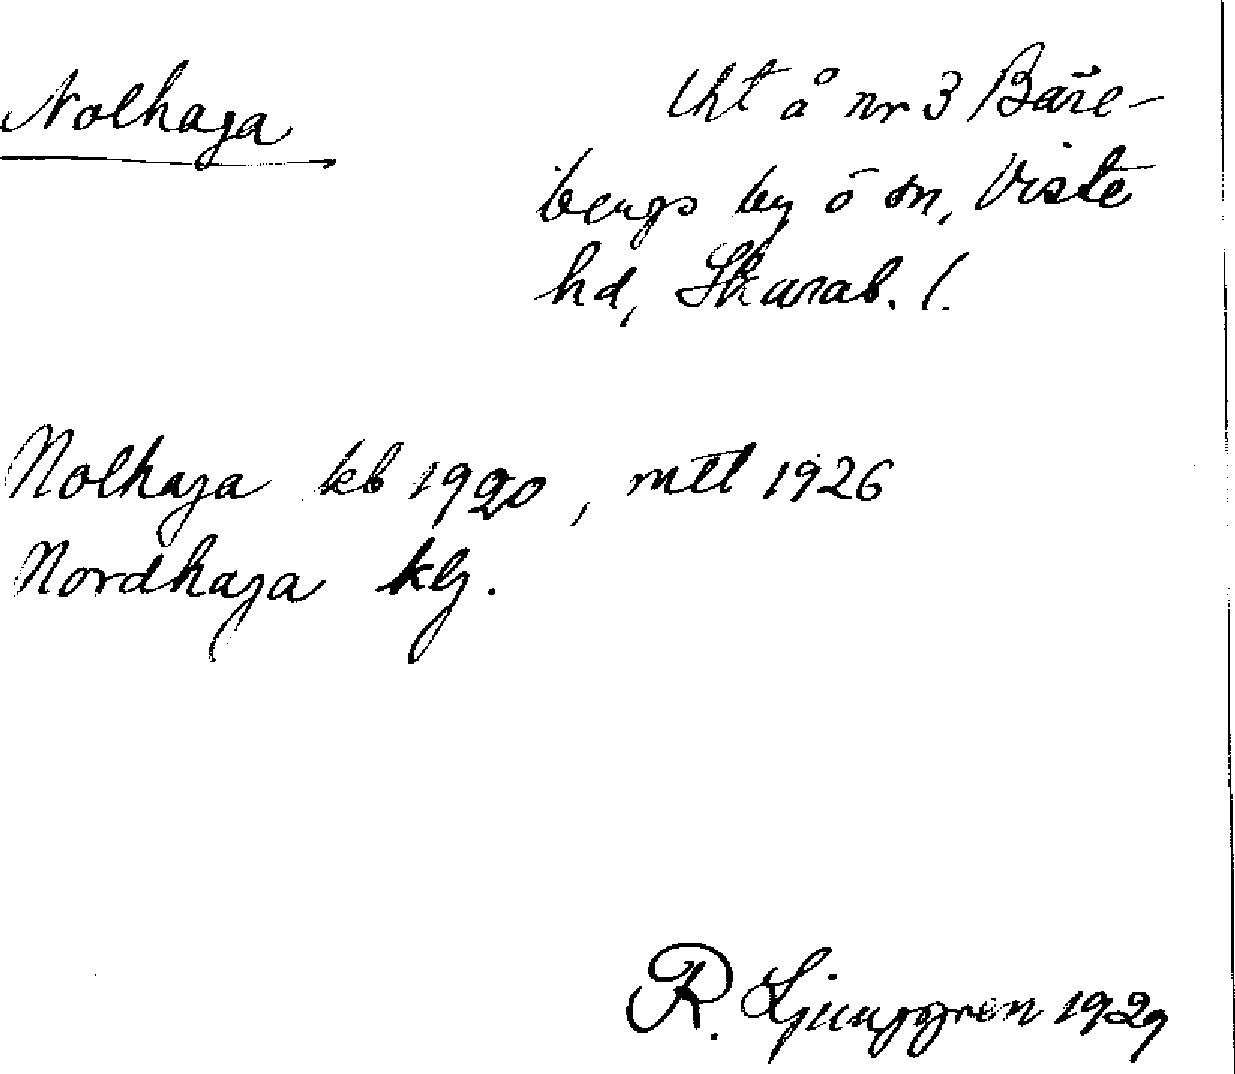 Nolhaga
lht å nr 3 Båre-
bergs by o sn, Viste
hd, Skarab. l.
Nolhaga kb 1920, mtl 1926
Nordhaga kb.
R. Ljunggren 1929